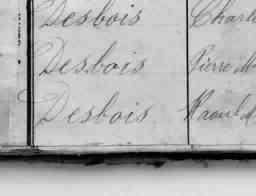 Desbois Charl
Desbois Pierre M
Desbois Raoul